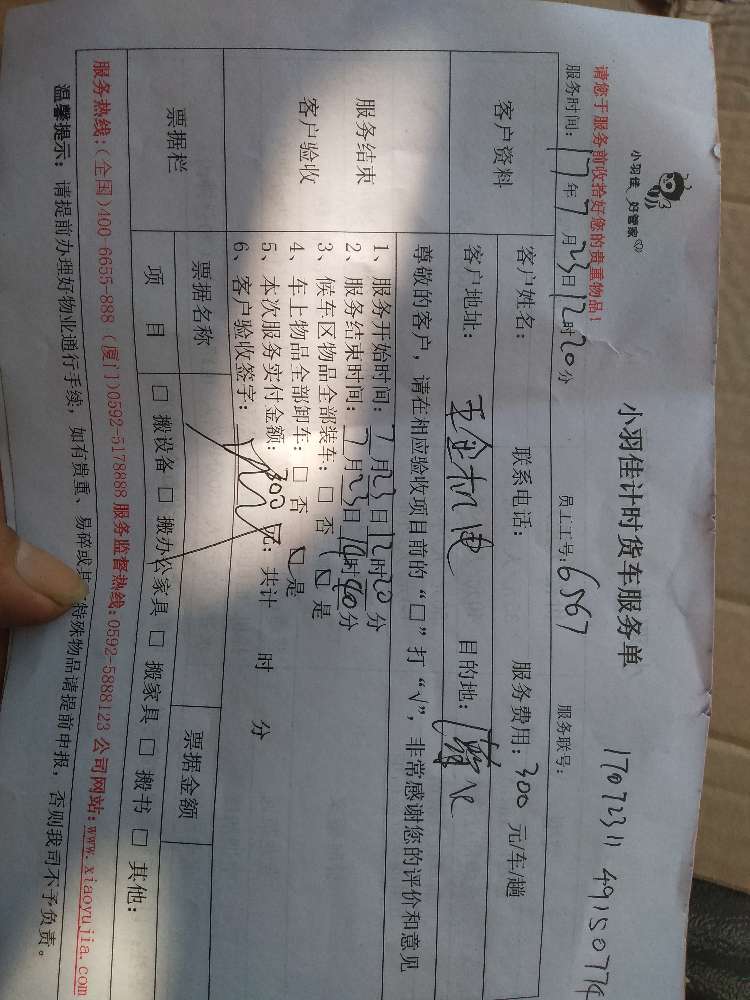 小羽佳 好管家
小羽佳计时货车服务单
17072311 49150774
请您于服务前收拾好您的贵重物品!
服务时间: 17年7月23日12时20分 员工工号: 6567 服务联号:
客户资料
客户姓名: 联系电话: 服务费用: 300 元/车/趟
客户地址: 目的地:
尊敬的客户，请在相应验收项目前的“□”打“√”，非常感谢您的评价和意见
服务结束
客户验收
1、服务开始时间: 7月23日12时20分
2、服务结束时间: 7月23日 时40分
3、候车区物品全部装车: □ 否 ☑ 是
4、车上物品全部卸车: □ 否 ☑ 是
5、本次服务实付金额: 300 元; 共计 时 分
6、客户验收签字:
票据栏
票据名称 票据金额
项目 □ 搬设备 □ 搬办公家具 □ 搬家具 □ 搬书 □ 其他:
服务热线:(全国)400-6655-888 (厦门)0592-5178888 服务监督热线:0592-5888123 公司网站:www.xiaoyujia.com
温馨提示: 请提前办理好物业通行手续，如有贵重、易碎或其 特殊物品请提前申报，否则我司不予负责。